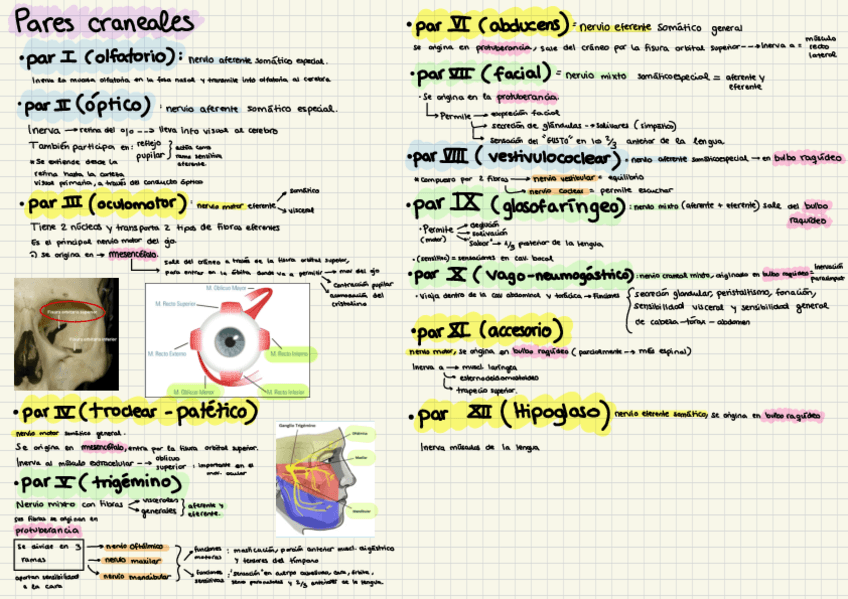 Pares craneales
• par I (olfatorio): nervio aferente somático especial.
Inerva la mucosa olfatoria en la fosa nasal y transmite info olfatoria al cerebro
• par II (óptico) : nervio aferente somático especial.
Inerva → retina del ojo ---> lleva info visual al cerebro
También participa en: reflejo pupilar } actúa como rama sensitiva aferente.
* Se extiende desde la
retina hasta la corteza
visual primaria, a través del conducto óptico
• par III (oculomotor) : nervio motor eferente → somático
→ visceral
Tiene 2 núcleos y transporta 2 tipos de fibra eferentes
Es el principal nervio motor del ojo.
Se origina en → mesencéfalo.
sale del cráneo a través de la fisura orbital superior,
para entrar en la órbita donde va a permitir → mov del ojo
→ contracción pupilar
→ acomodación del cristalino
Fisura orbitaria superior
Fisura orbitaria inferior
M. Oblicuo Mayor
M. Recto Superior
M. Recto Externo
M. Recto Interno
M. Oblicuo Menor
M. Recto Inferior
• par IV (troclear - patético)
nervio motor somático general.
Se origina en mesencéfalo, entra por la fisura orbital superior.
Inerva al músculo extraocular --> oblicuo superior : importante en el mov. ocular
• par V (trigémino)
Nervio mixto con fibras → viscerales
→ generales } aferente y eferente.
sus fibras se originan en
protuberancia
Se divide en 3 ramas
→ nervio oftálmico
→ nervio maxilar
→ nervio mandibular
aportan sensibilidad a la cara
funciones motoras : masticación, porción anterior musc. digástrico
y tensores del tímpano
funciones sensitivas : "sensación" en cuero cabelludo, cara, órbita,
senos paranasales y 2/3 anteriores de la lengua.
Ganglio Trigémino
Oftálmico
Maxilar
Mandibular
• par VI (abducens) = nervio eferente somático general
se origina en protuberancia, sale del cráneo por la fisura orbital superior --→ inerva a = músculo recto lateral
• par VII (facial) = nervio mixto somático especial = aferente y eferente
• Se origina en la protuberancia.
→ Permite → expresión facial
→ secreción de glándulas → salivares (simpático)
→ sensación del "GUSTO" en los 2/3 anterior de la lengua.
• par VIII (vestivulococlear) • nervio aferente somático especial → en bulbo raquídeo
* Compuesto por 2 fibras → nervio vestibular = equilibrio
→ nervio coclear = permite escuchar
• par IX (glosofaríngeo) : nervio mixto (aferente + eferente) sale del bulbo raquídeo
• Permite (motor) → deglución
→ salivación
→ "Sabor" → 1/3 posterior de la lengua.
• (sensitivo) = sensaciones en cav. bucal
• par X (vago-neumogástrico) : nervio craneal mixto, originado en bulbo raquídeo = inervación parasimpat
• Viaja dentro de la cav abdominal y torácica → Funciones { secreción glandular, peristaltismo, fonación,
sensibilidad visceral y sensibilidad general
de cabeza - tórax - abdomen
• par XI (accesorio)
nervio motor, se origina en bulbo raquídeo (parcialmente → más espinal)
Inerva a → muscl. laríngea
→ esternocleidomastoideo
→ trapecio superior.
• par XII (Hipogloso) nervio eferente somático, se origina en bulbo raquídeo
Inerva músculos de la lengua